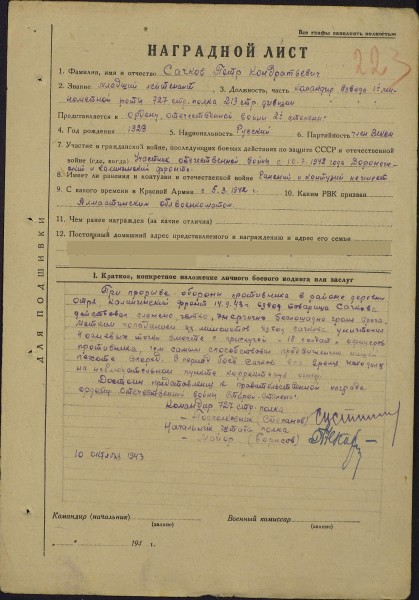 Все графы заполнять полностью
223
НАГРАДНОЙ ЛИСТ
1. Фамилия, имя и отчество Сачков Петр Кондратьевич
2. Звание младший лейтенант 3. Должность, часть командир взвода 1ой ми-
нометной роты 727 стр. полка 219 стр. дивизии
Представляется к ордену „отечественной войны 2ой степени"
4. Год рождения 1923 5. Национальность Русский 6. Партийность член ВЛКСМ
7. Участие в гражданской войне, последующих боевых действиях по защите СССР и отечественной
войне (где, когда) Участник отечественной войны с 10.7.1942 года Воронеж-
ский и калининский фронты
8. Имеет ли ранения и контузии в отечественной войне Ранений и контузий не имеет
9. С какого времени в Красной Армии с 5.3.1942 г. 10. Каким РВК призван
Алмаатинским облвоенкоматом
11. Чем ранее награжден (за какие отличия)
12. Постоянный домашний адрес представляемого к награждению и адрес его семьи
ДЛЯ ПОДШИВКИ
I. Краткое, конкретное изложение личного боевого подвига или заслуг
При прорыве обороны противника в районе деревни
Калининский фронт 14.9.43г взвод товарища Сачкова
действовал слажено, четко, энергично беспощадно громя врага.
Метким попаданием из минометов взвод Сачкова уничтожил
4 огневых точки вместе с прислугой и 18 солдат и офицеров
противника, тем самым способствовал продвижению нашей
пехоты вперед. В период боев Сачков все время находился
на наблюдательном пункте корректируя огонь.
Достоин представлению к правительственной награде
ордену „Отечественной войны второй степени"
Командир 727 стр. полка
Подполковник (Степанов)
Начальник штаба полка
Майор (Борисов)
10 октября 1943
Командир (начальник)
(звание)
Военный комиссар
(звание)
194 г.